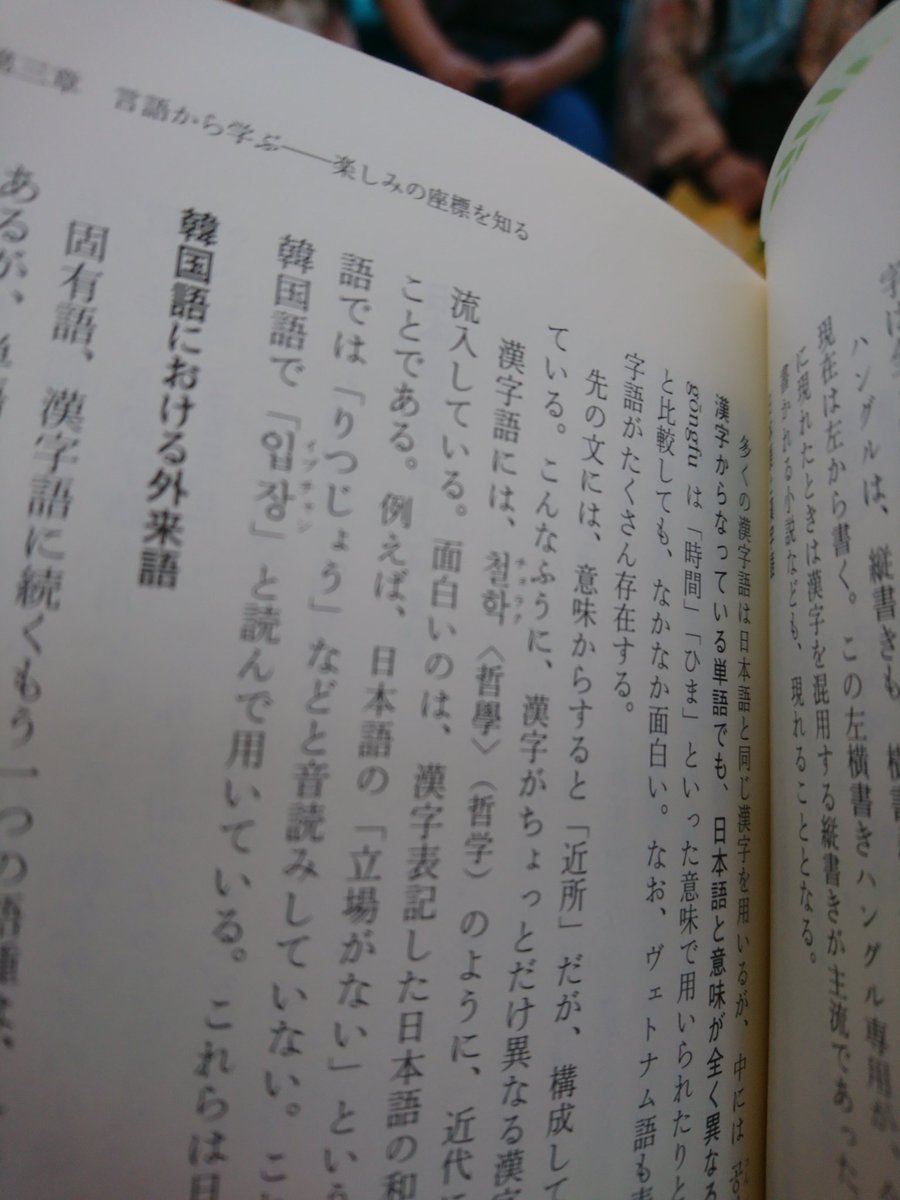 ハングルは、縦書きも、横書き
現在は左から書く。この左横書きハングル専用が、
に現れたときは漢字を混用する縦書きが主流であった
書かれる小説なども、現れることとなる。
第三章　言語から学ぶ——楽しみの座標を知る
多くの漢字語は日本語と同じ漢字を用いるが、中には
漢字からなっている単語でも、日本語と意味が全く異なる
gōngfu は「時間」「ひま」といった意味で用いられたりと
と比較しても、なかなか面白い。なお、ヴェトナム語も
字語がたくさん存在する。
先の文には、意味からすると「近所」だが、構成して
ている。こんなふうに、漢字がちょっとだけ異なる漢
漢字語には、철학〈哲學〉（哲学）のように、近代に
チョラク
流入している。面白いのは、漢字表記した日本語の和
ことである。例えば、日本語の「立場がない」という
語では「りつじょう」などと音読みしていない。こ
韓国語で「입장」と読んで用いている。これらは日
イプチャン
韓国語における外来語
固有語、漢字語に続くもう一つの語種は、
あるが、